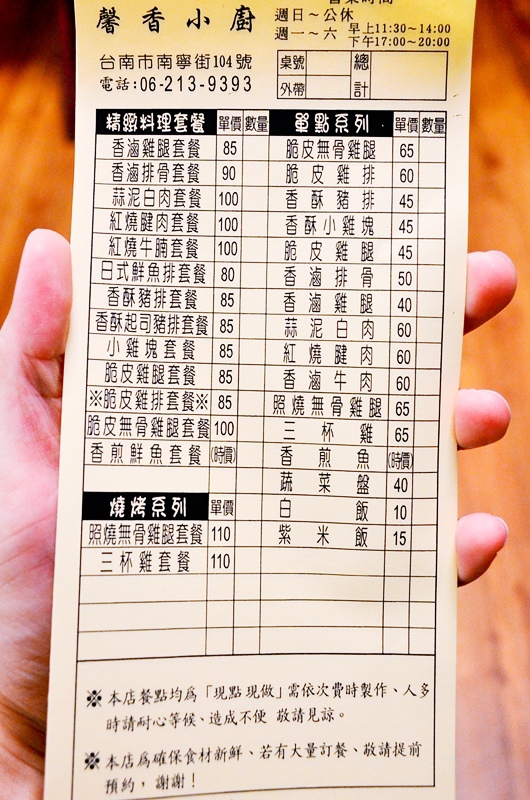 營業時間
馨香小廚
週日～公休
週一～六 早上11:30～14:00
下午17:00～20:00
台南市南寧街104號
電話:06-213-9393
桌號 總計
外帶
精緻料理套餐 單價 數量
香滷雞腿套餐 85
香滷排骨套餐 90
蒜泥白肉套餐 100
紅燒腱肉套餐 100
紅燒牛腩套餐 100
日式鮮魚排套餐 80
香酥豬排套餐 85
香酥起司豬排套餐 85
小雞塊套餐 85
脆皮雞腿套餐 85
※脆皮雞排套餐※ 85
脆皮無骨雞腿套餐 100
香煎鮮魚套餐 (時價)
燒烤系列 單價
照燒無骨雞腿套餐 110
三杯雞套餐 110
單點系列 單價 數量
脆皮無骨雞腿 65
脆皮雞排 60
香酥豬排 45
香酥小雞塊 45
脆皮雞腿 45
香滷排骨 50
香滷雞腿 40
蒜泥白肉 60
紅燒腱肉 60
香滷牛肉 60
照燒無骨雞腿 65
三杯雞 65
香煎魚 (時價)
蔬菜盤 40
白飯 10
紫米飯 15
※本店餐點均為「現點現做」需依次費時製作、人多
時請耐心等候、造成不便 敬請見諒。
※本店為確保食材新鮮、若有大量訂餐、敬請提前
預約，謝謝！